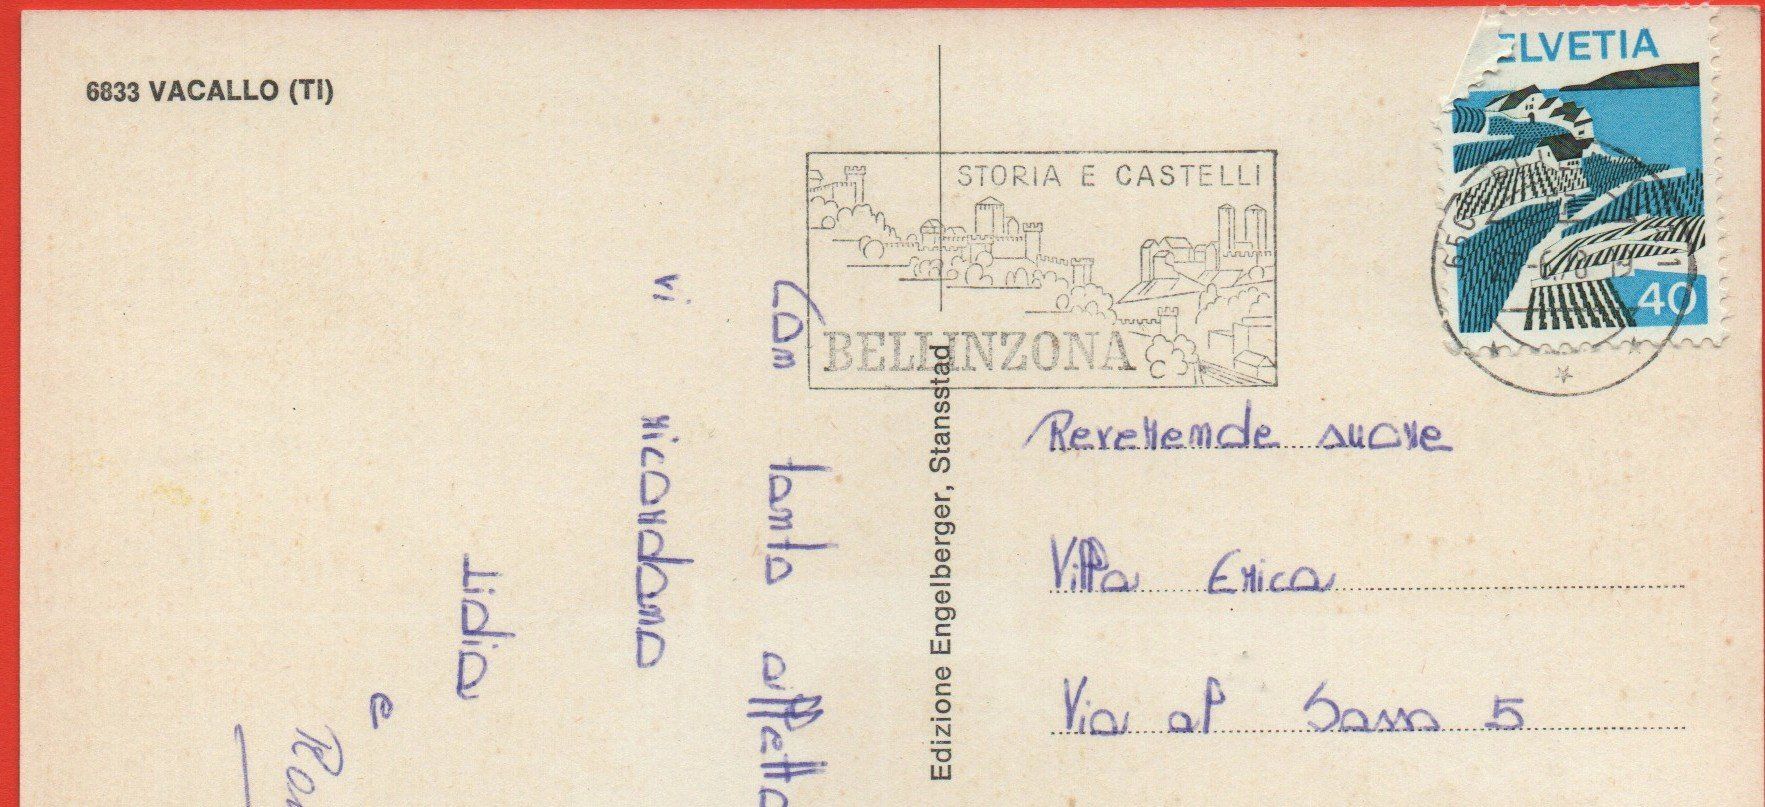 6833 VACALLO (TI)
HELVETIA
40
STORIA E CASTELLI
BELLINZONA
Edizione Engelberger, Stansstad
Reverende suore
Villa Erica
Via al Sasso 5
Con tanto affetto
vi ricordano
Lidia
e